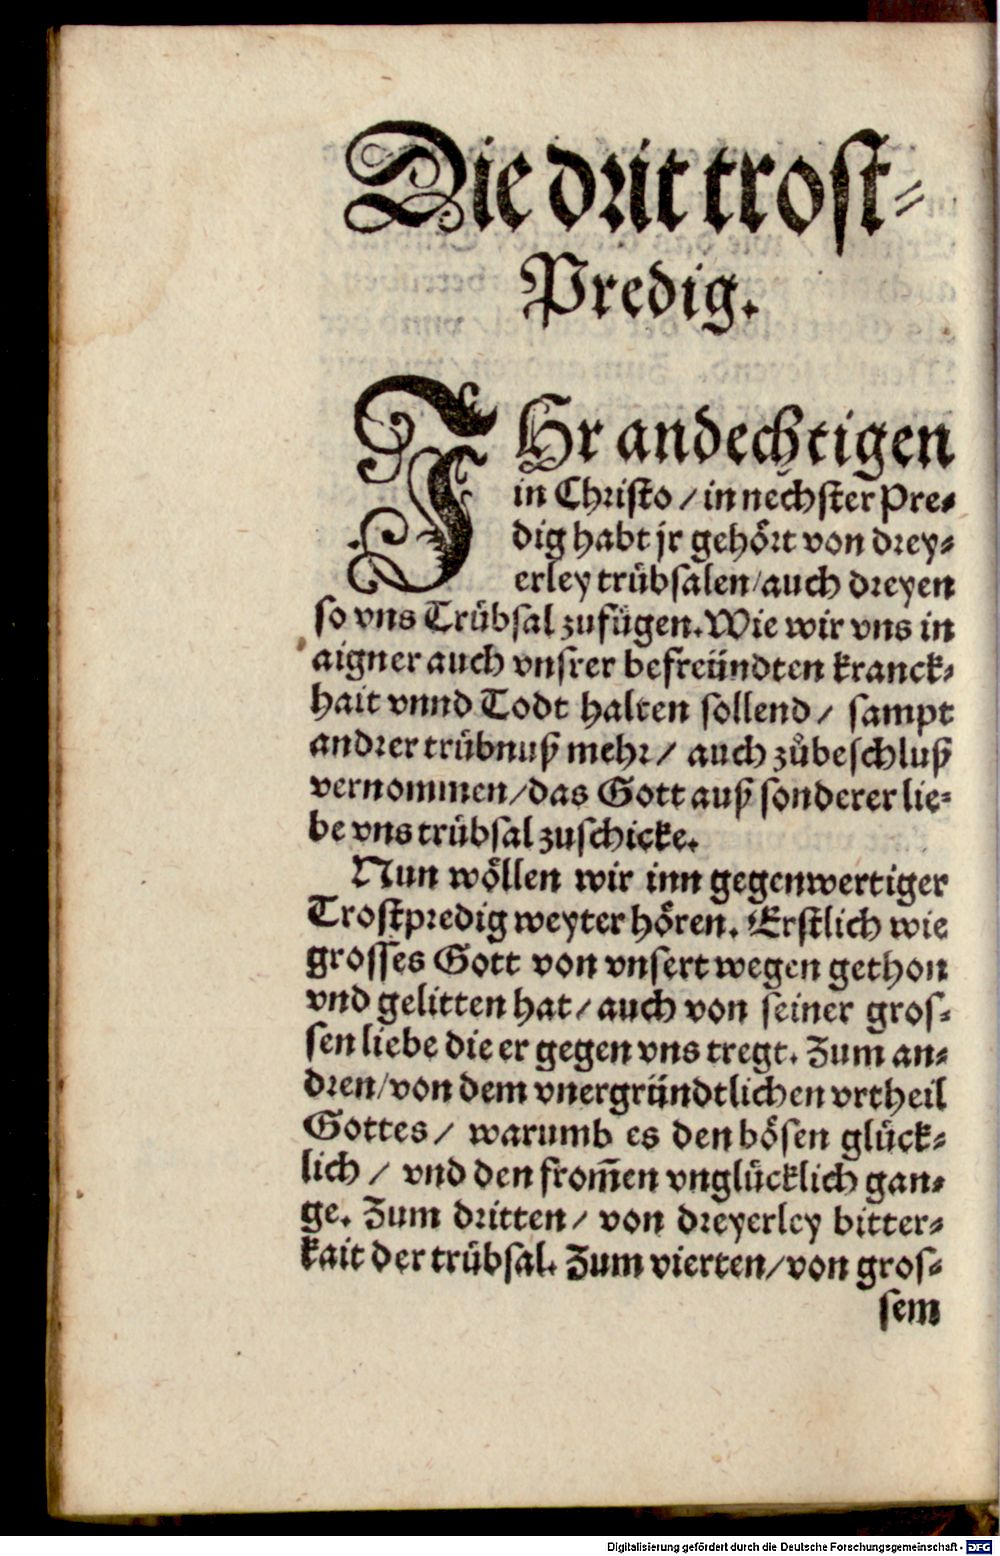 Die drit trost-
Predig.
IHr andechtigen
in Christo / in nechster Pre-
dig habt jr gehört von drey-
erley trübsalen / auch dreyen
so vns Trübsal zufügen. Wie wir vns in
aigner auch vnsrer befreündten kranck-
hait vnnd Todt halten sollend / sampt
andrer trübnuß mehr / auch zůbeschluß
vernommen / das Gott auß sonderer lie-
be vns trübsal zuschicke.
Nun wöllen wir inn gegenwertiger
Trostpredig weyter hören. Erstlich wie
grosses Gott von vnsert wegen gethon
vnd gelitten hat / auch von seiner gros-
sen liebe die er gegen vns tregt. Zum an-
dren / von dem vnergründtlichen vrtheil
Gottes / warumb es den bösen glück-
lich / vnd den from̃en vnglücklich gan-
ge. Zum dritten / von dreyerley bitter-
kait der trübsal. Zum vierten / von gros-
sem
Digitalisierung gefördert durch die Deutsche Forschungsgemeinschaft - DFG